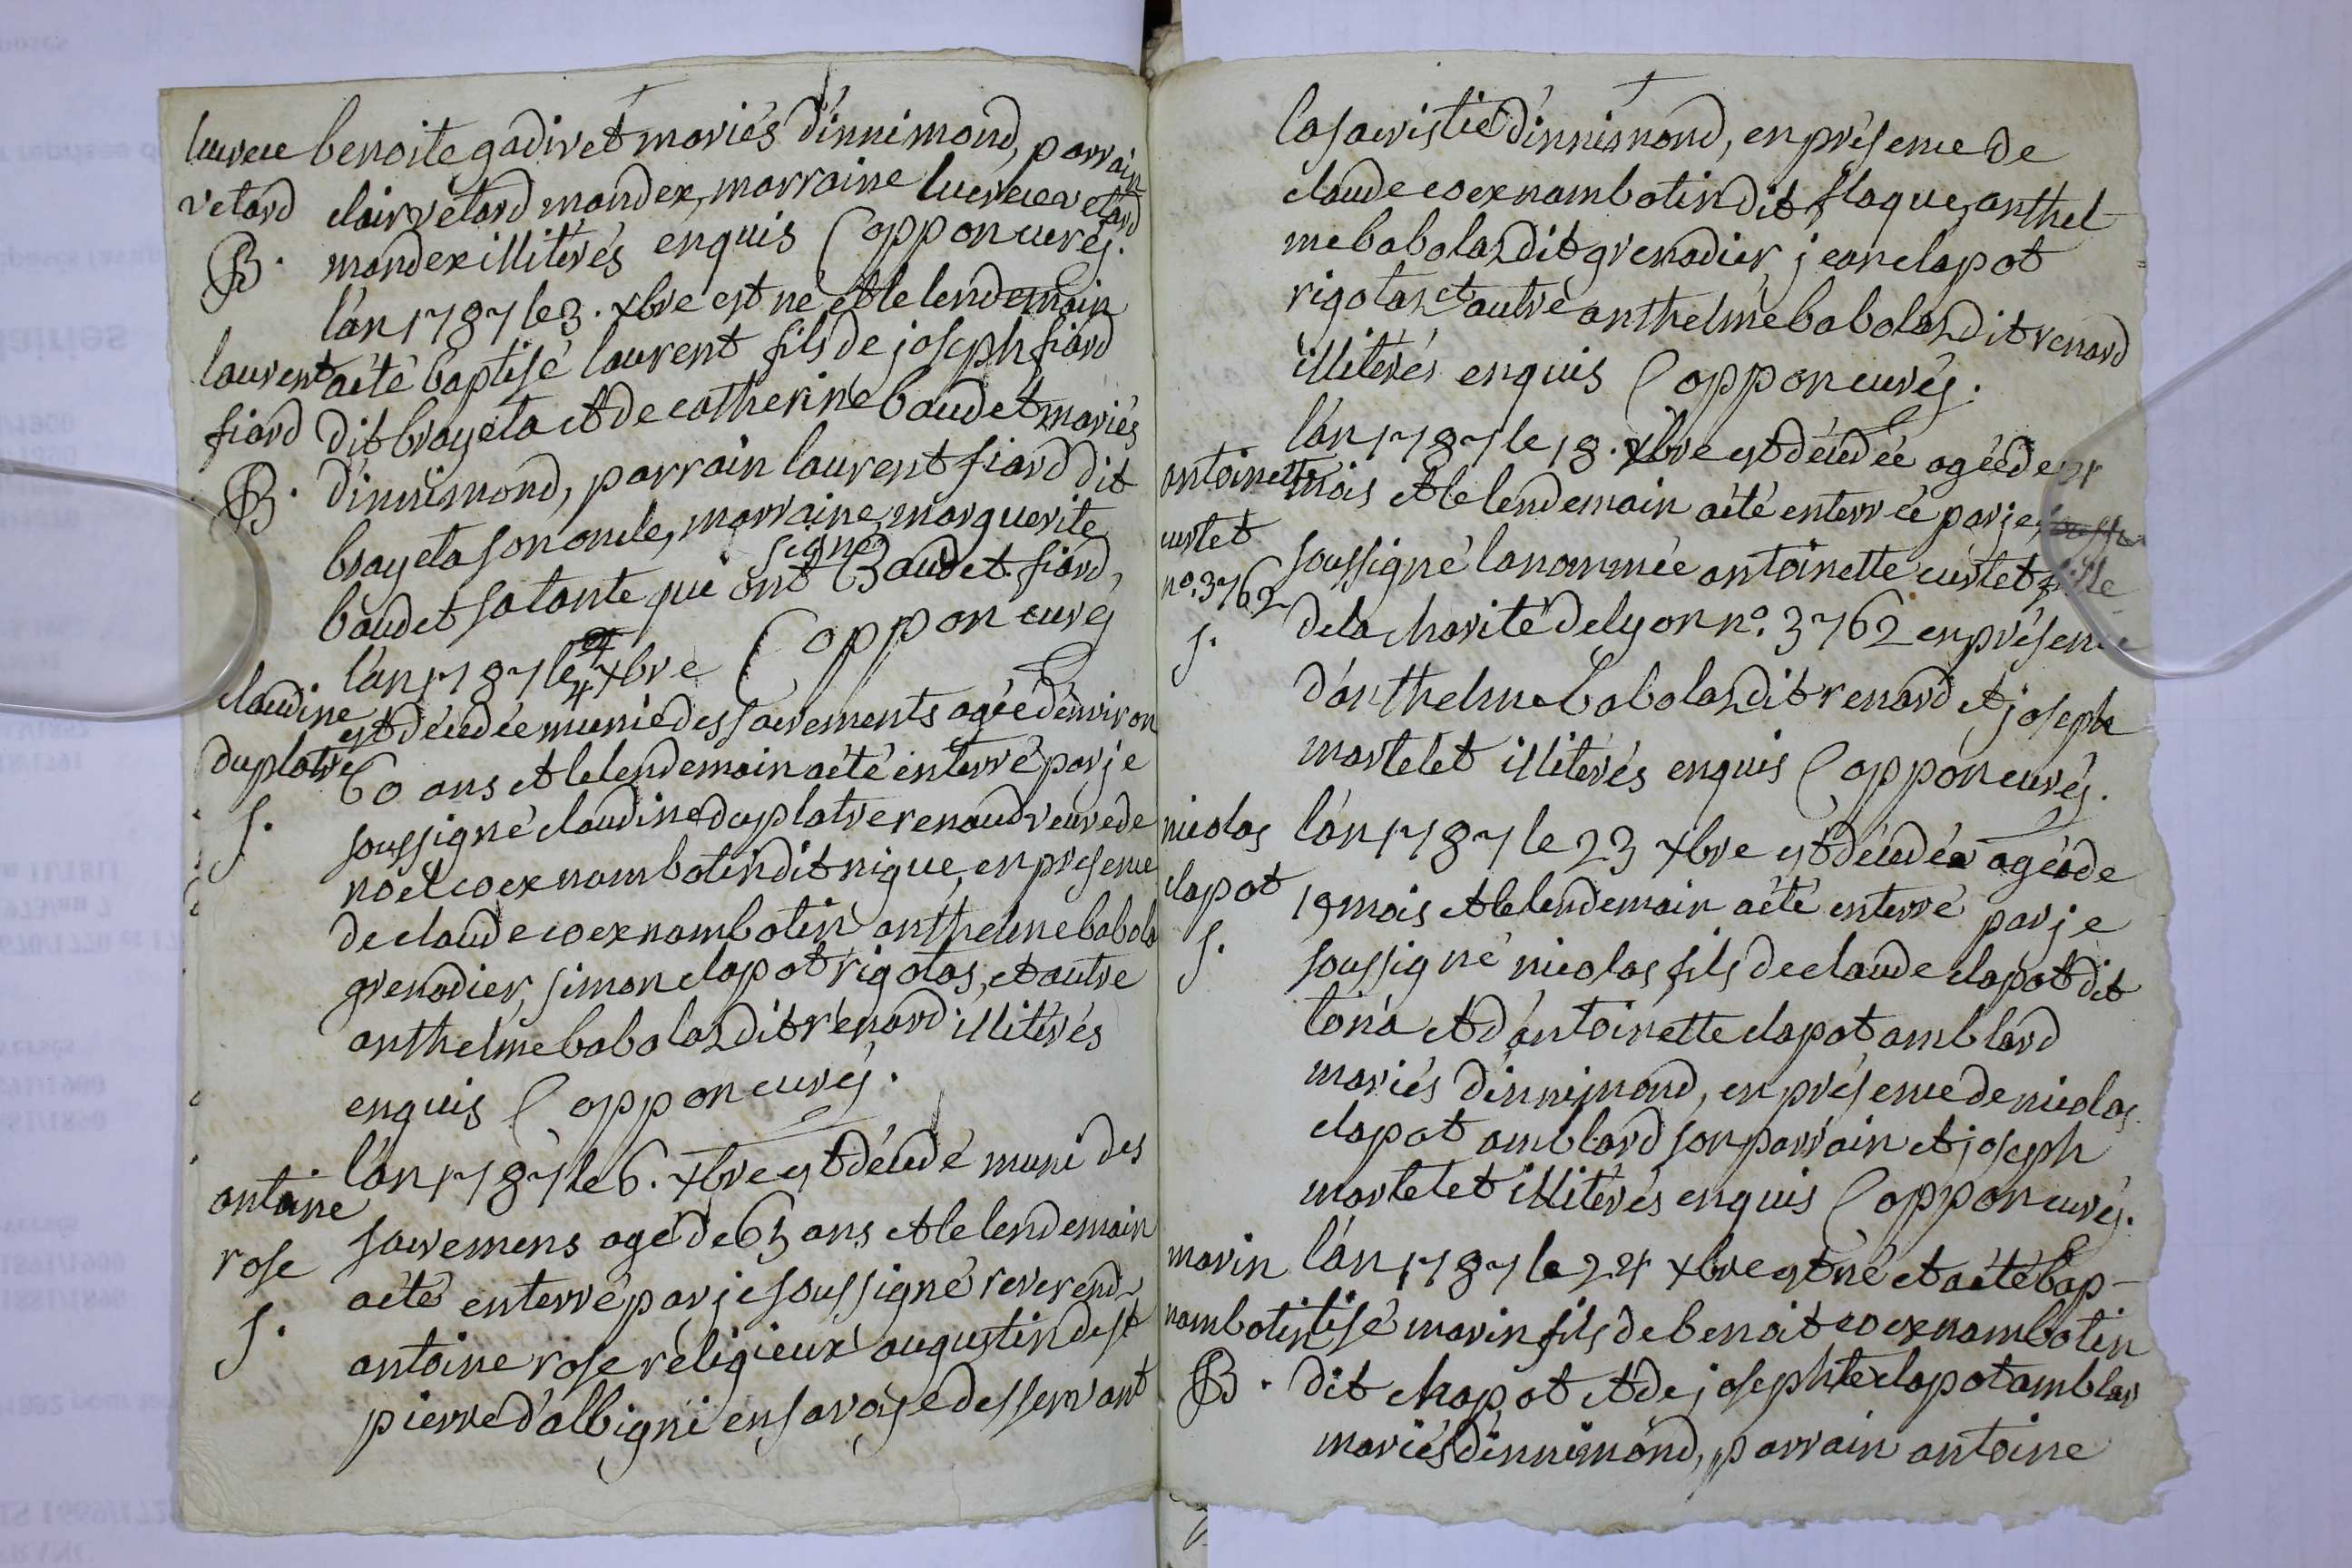 lucrece benoite gadivet mariés d'innimond, parrain
vetard clair vetard mandex, marraine lucrece vetard
B. mandex illiterés enquis C oppon curé.
l'an 1787 le 3. xbre est né et le lendemain
laurent a été baptisé laurent fils de joseph fiard
fiard dit brayeta et de catherine baudet mariés
B. d'innimond, parrain laurent fiard dit
brayeta son oncle, marraine marguerite
signé
baudet sa tante qui ont Baudet. fiard,
l'an 1787 le 4 xbre C oppon curé
claudine est décédée munie des sacrements agée d'environ
duplatre 60 ans et le lendemain a été enterré par je
S. soussigné claudine duplatre renaud veuve de
noel coex nambotin dit nique, en presence
de claude coex nambotin anthelme babola
grenadier, simon clapot rigotas, et autre
anthelme babolaz dit renard illiterés
enquis C oppon curé.
l'an 1787 le 6. xbre est décédé muni des
antoine sacremens agé de 65 ans et le lendemain
rose a été enterré par je soussigné reverend
S. antoine rose réligieux augustin de st
pierre d'albigni en savoÿe desservant
la sacristie d'innimond, en présence de
claude coex nambotin dit flaque, anthel-
me babolaz dit grenadier jean clapot
rigotaz et autre anthelme babolaz dit renard
illiterés enquis C oppon curé.
l'an 1787 le 18. xbre est décédée agée de
antoinette mois et le lendemain a été enterrée par je
curtet soussigné la nommée antoinette curtet fille
no. 3762 de la charité de lyon no. 3762 en présence
S. d'anthelme babolaz dit renard et joseph
martelet illiterés enquis C oppon curé.
nicolas l'an 1787 le 23 xbre est décédé agé de
clapot 19 mois et le lendemain a été enterré par je
S. soussigné nicolas fils de claude clapot dit
tona et d'antoinette clapot amblard
mariés d'innimond, en présence de nicolas
clapot amblard son parrain et joseph
martelet illiterés enquis C oppon curé.
marin l'an 1787 le 24 xbre est né et a été bap-
nambotin tisé marin fils de benoit coex nambotin
B. dit chapot et de josephte clapot amblar
mariés d'innimond, parrain antoine